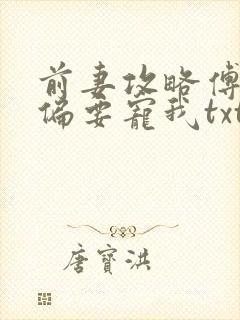 前妻攻略傅
偏要宠我txt
唐寶洪